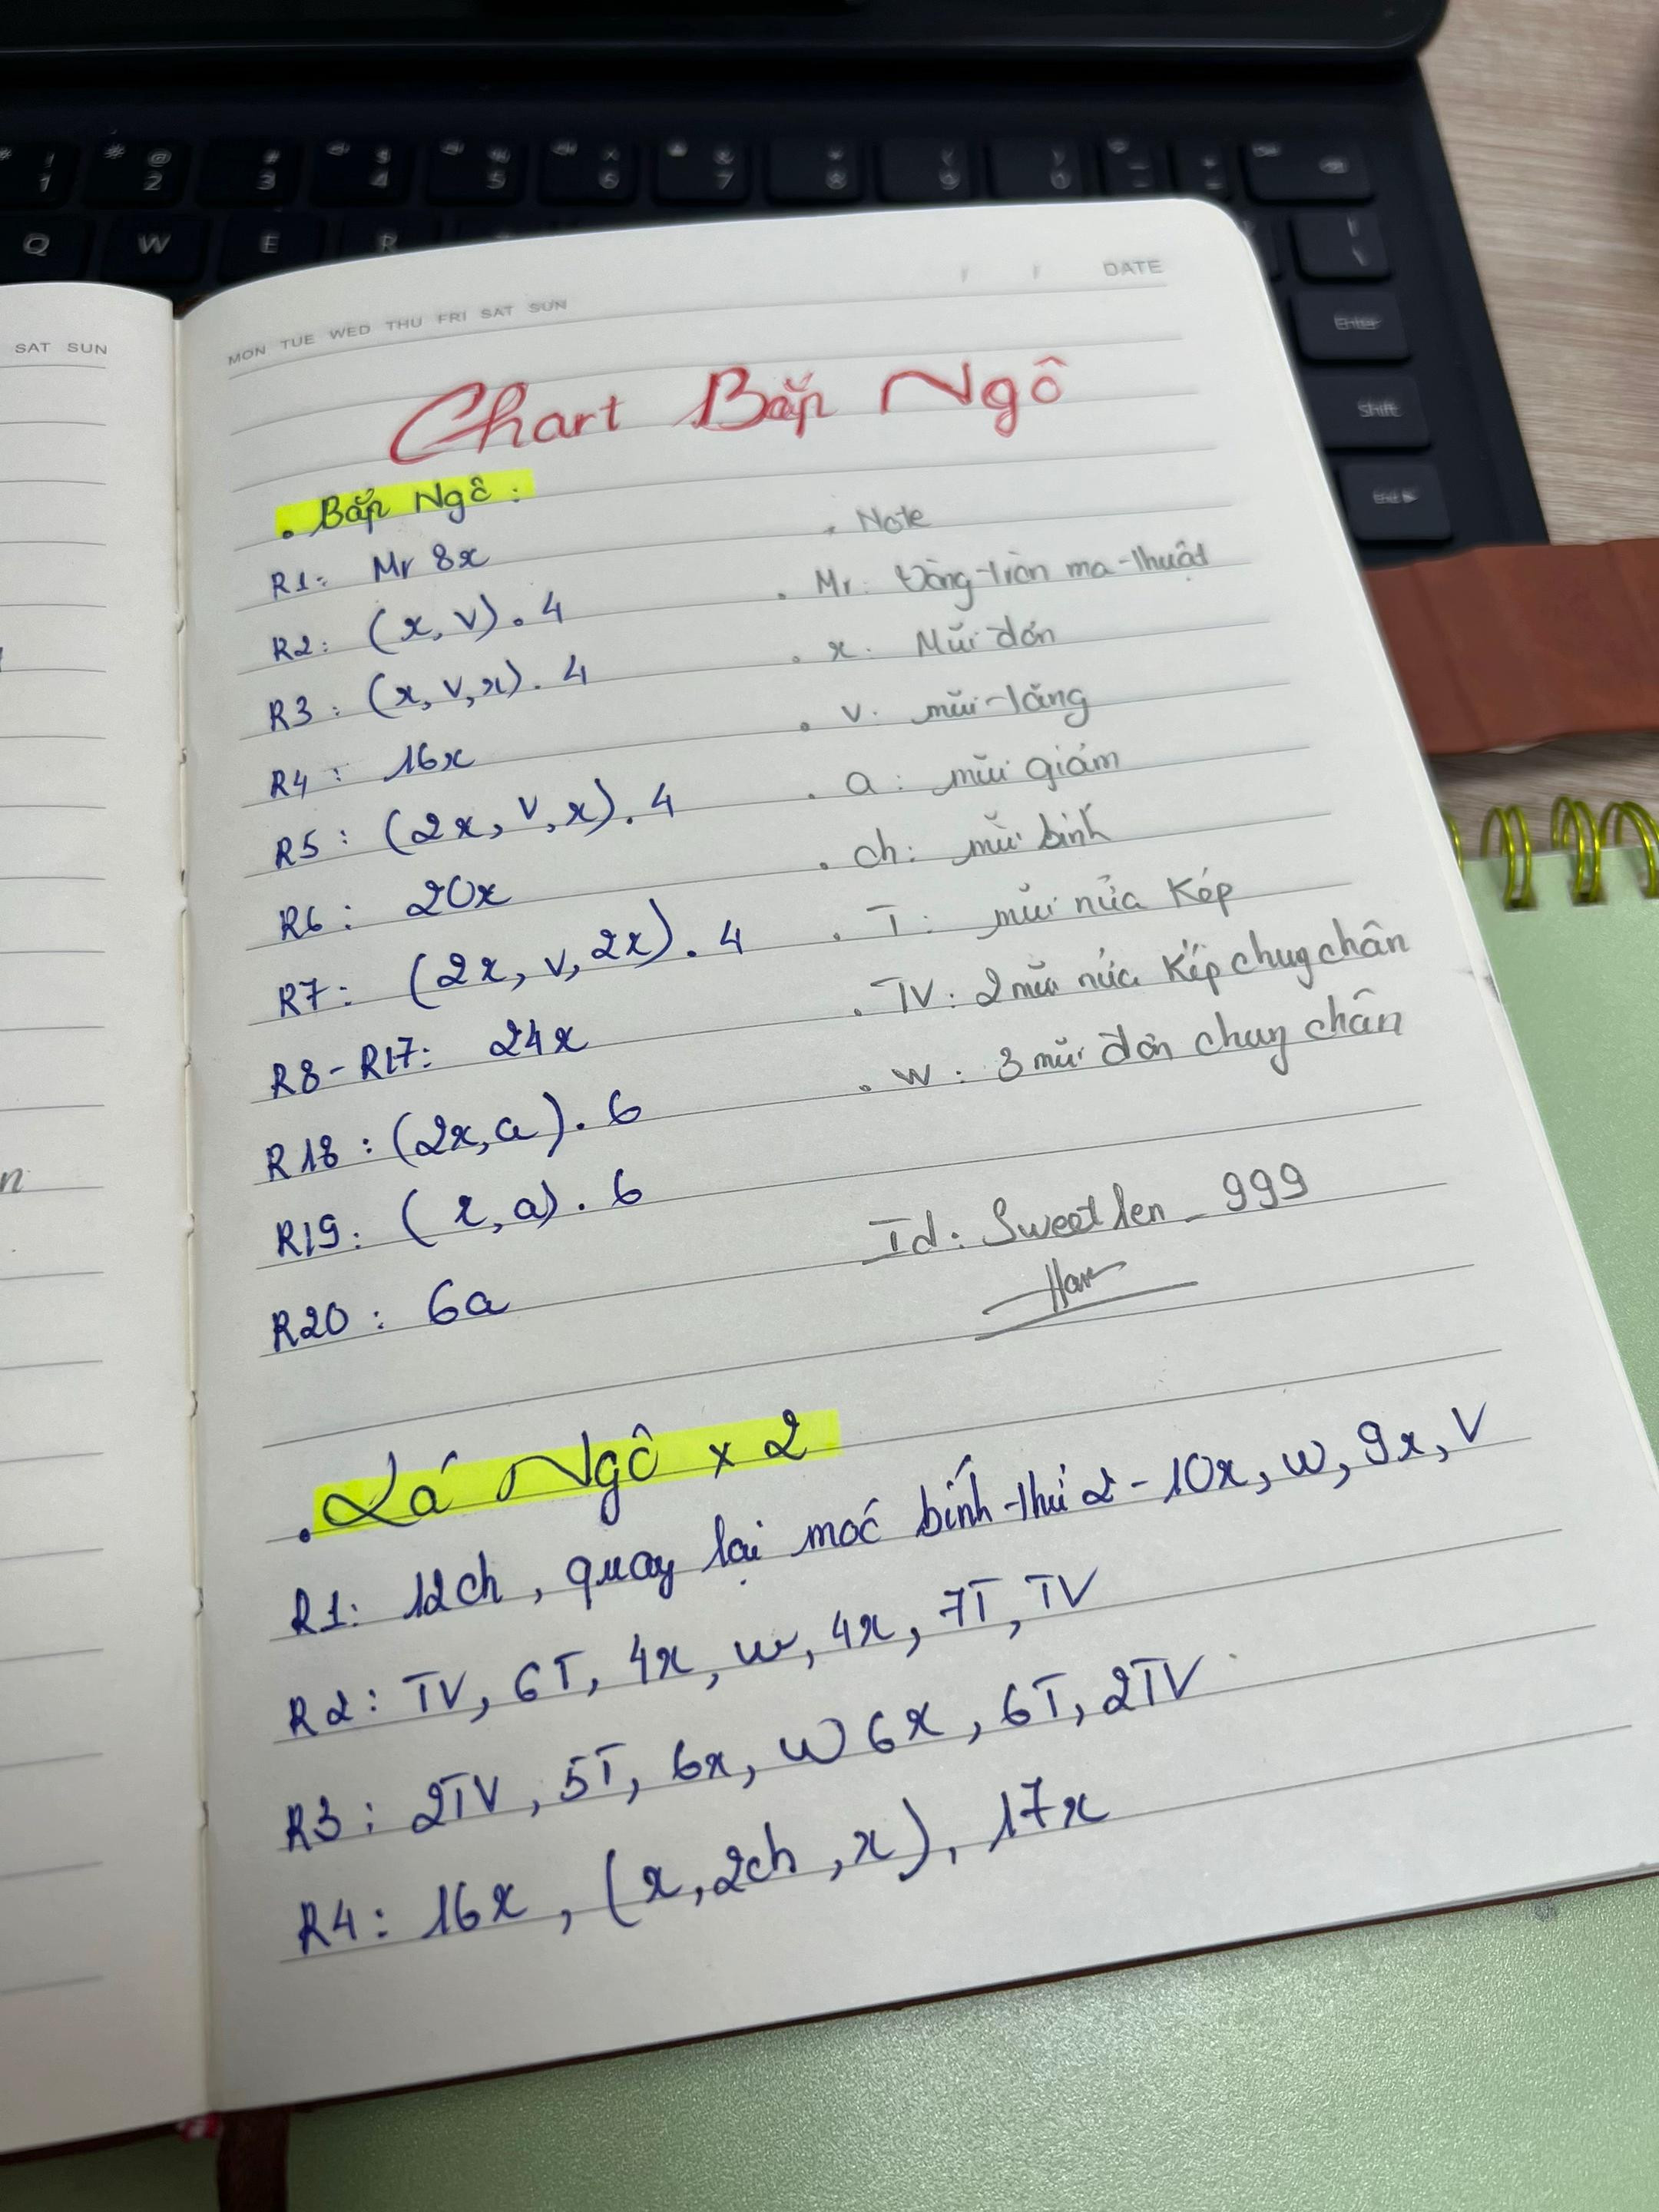 ! @ # $ % ^ &
1 2 3 4 5 6 7 8 9 0
Q W E R
Enter
Shift
SAT SUN
MON TUE WED THU FRI SAT SUN
DATE
Chart Bắp Ngô
. Bắp Ngô :
R1: Mr 8x
R2: (x, v) . 4
R3 : (x, v, x) . 4
R4 : 16x
R5 : (2x, v, x) . 4
R6 : 20x
R7 : (2x, v, 2x) . 4
R8 - R17: 24x
R18 : (2x, a) . 6
R19 : (x, a) . 6
R20 : 6a
. Note
. Mr: vòng tròn ma thuật
. x. Mũi đơn
. v. mũi tăng
. a : mũi giảm
. ch : mũi bính
. T : mũi nửa kép
. TV : 2 mũi nửa kép chung chân
. w : 3 mũi đơn chung chân
Id: Sweet len _ 999
. Lá Ngô x 2
R1: 12ch , quay lại móc bính thứ 2 - 10x, w, 9x, v
R2 : TV, 6T, 4x, w, 4x, 7T, TV
R3 : 2TV , 5T, 6x, w 6x , 6T, 2TV
R4 : 16x , (x, 2ch , x) , 17x